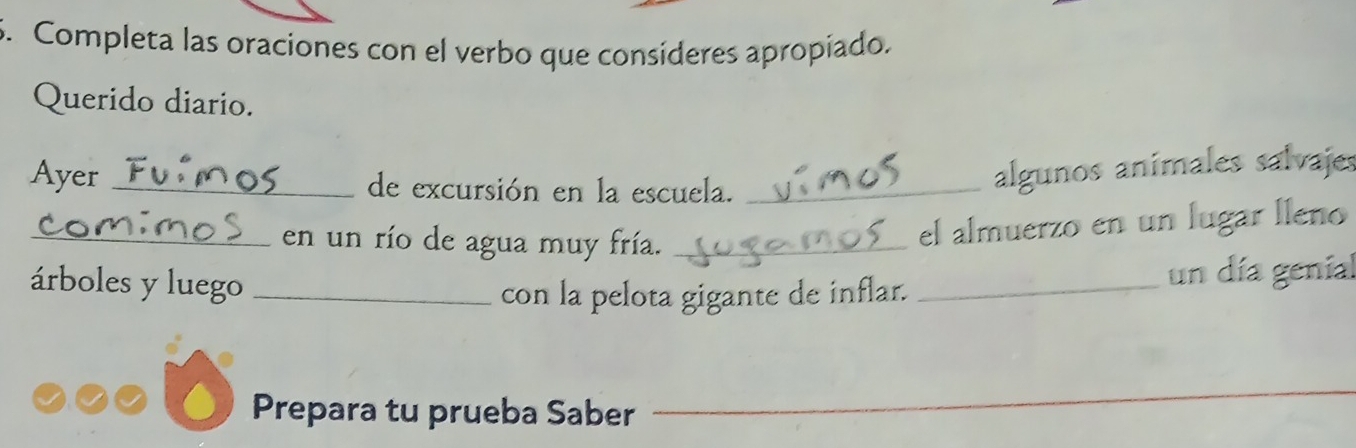 5. Completa las oraciones con el verbo que consideres apropiado.
Querido diario.
Ayer Fuimos de excursión en la escuela. vimos algunos animales salvajes
comimos en un río de agua muy fría. jugamos el almuerzo en un lugar lleno
árboles y luego __________ con la pelota gigante de inflar. __________ un día genial
Prepara tu prueba Saber